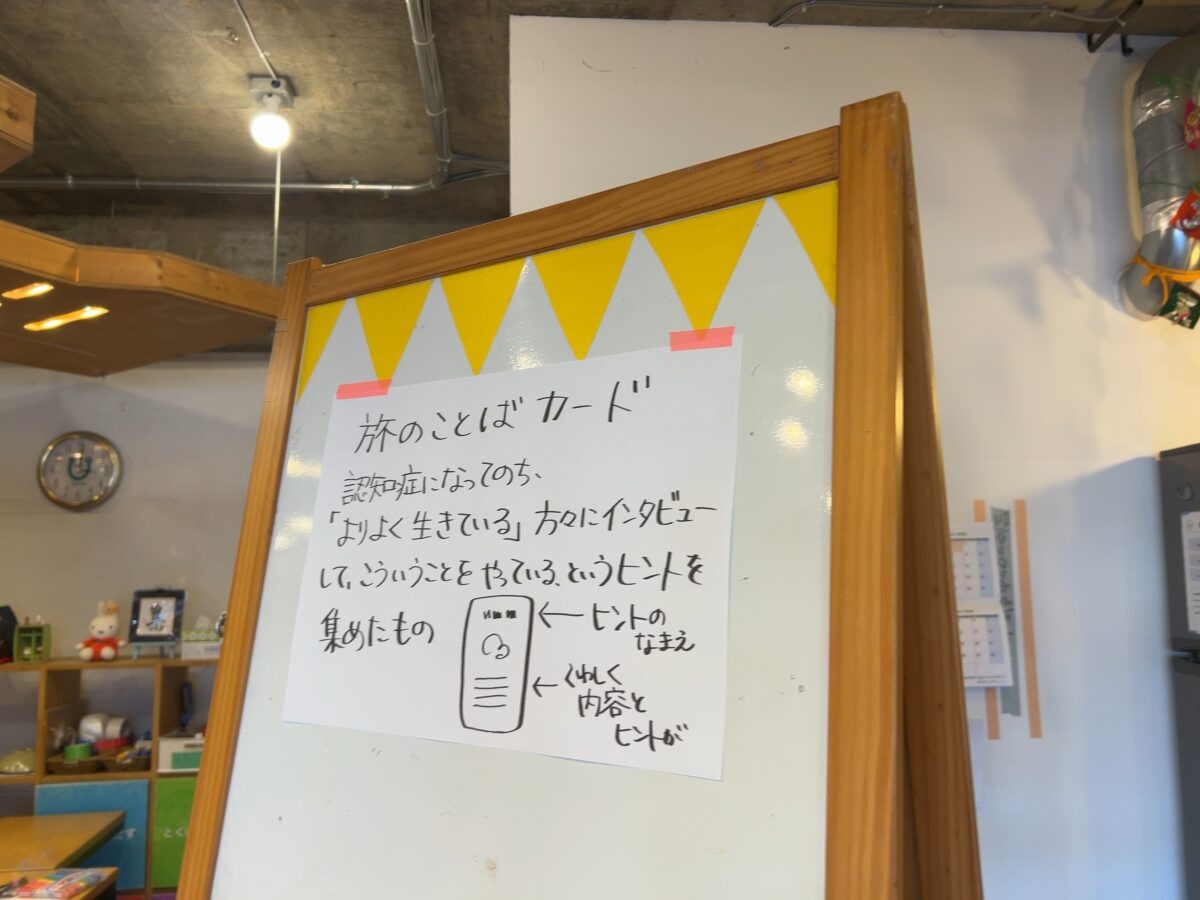 旅のことばカード
認知症になってのち、
「よりよく生きている」方々にインタビュー
して、こういうことをやっている、というヒントを
集めたもの
←ヒントの
なまえ
←くわしく
内容と
ヒントが